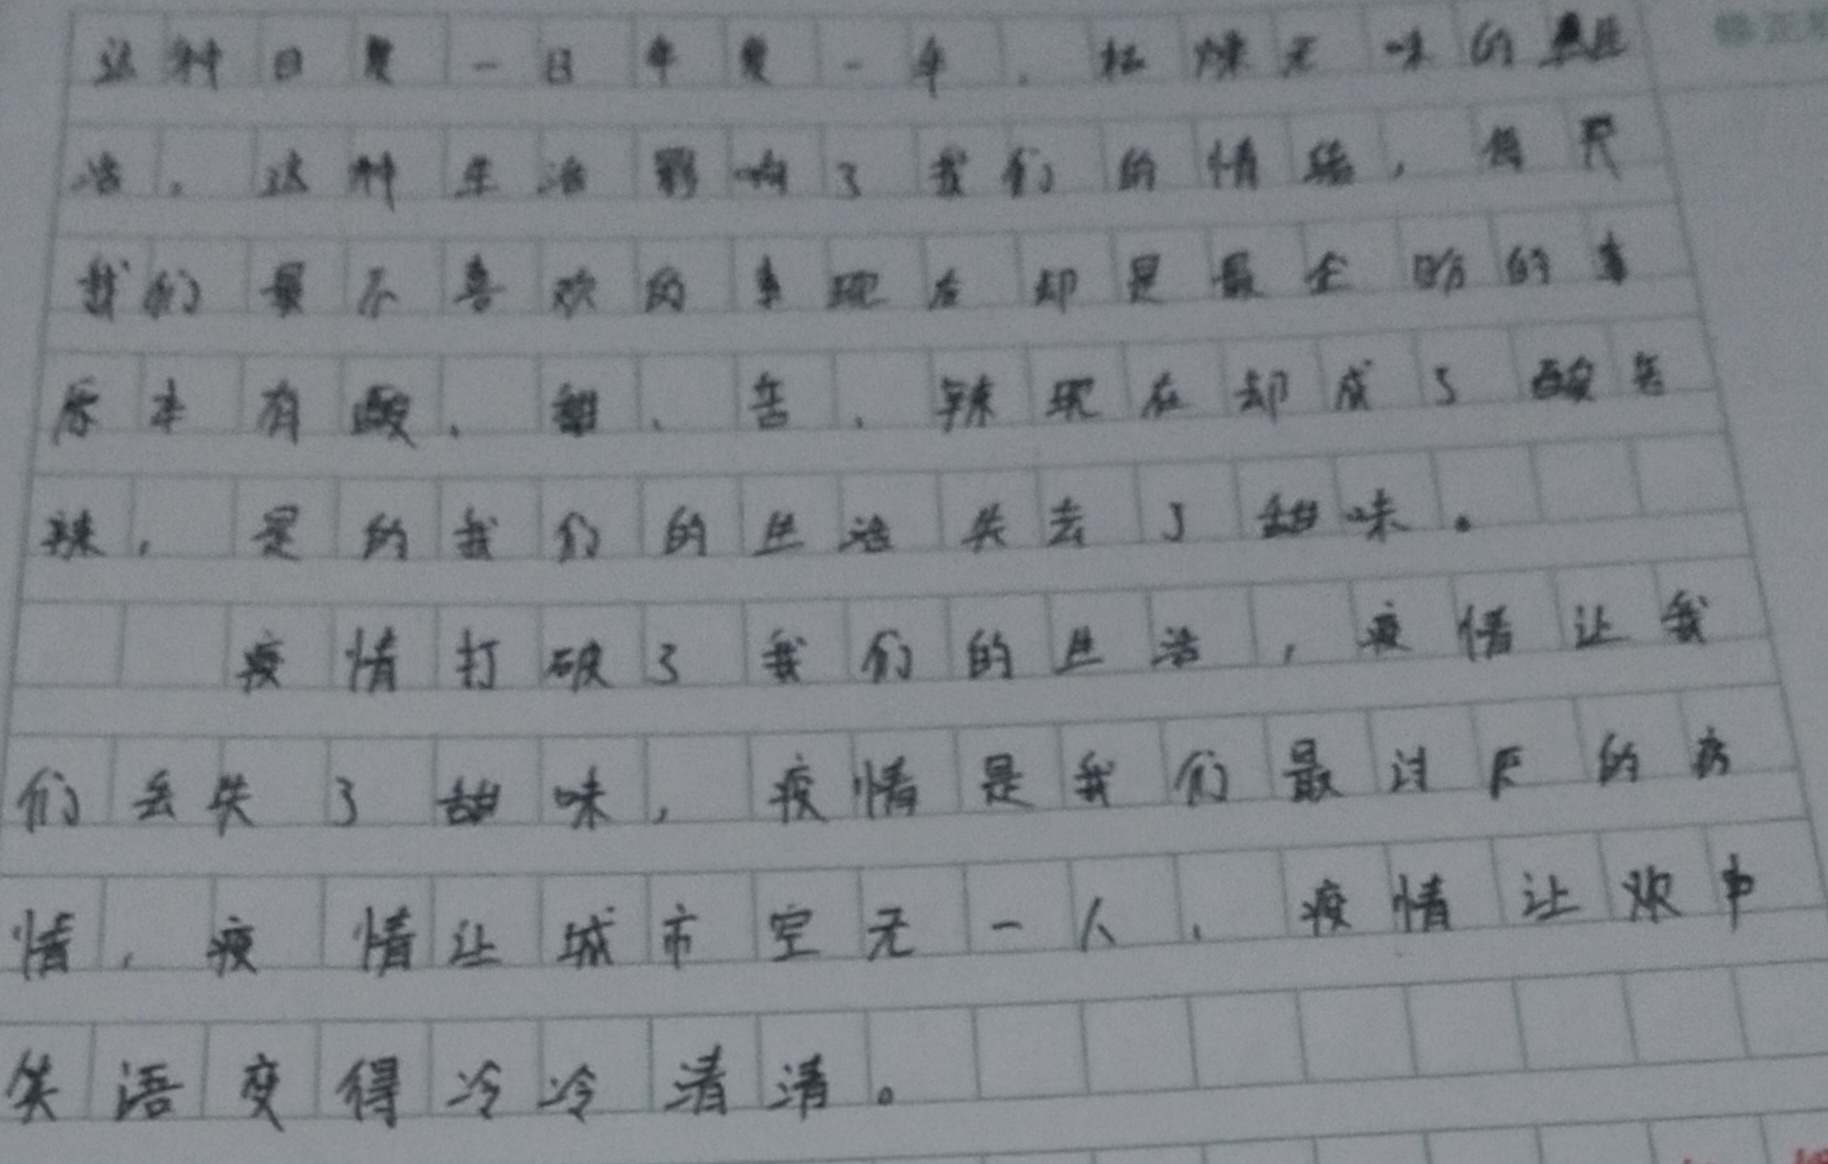 这种日复一日年复一年,枯燥无味的生
活。这种生活影响了我们的情绪,
我们最不喜欢的事现在却是最企盼的事
原本有酸、甜、苦、辣现在却成了酸苦
辣,是的我们的生活失去了甜味。
疫情打破了我们的生活,疫情让我
们丢失了甜味,疫情是我们最讨厌的病
情,疫情让城市空无一人,疫情让欢中
笑语变得冷冷清清。